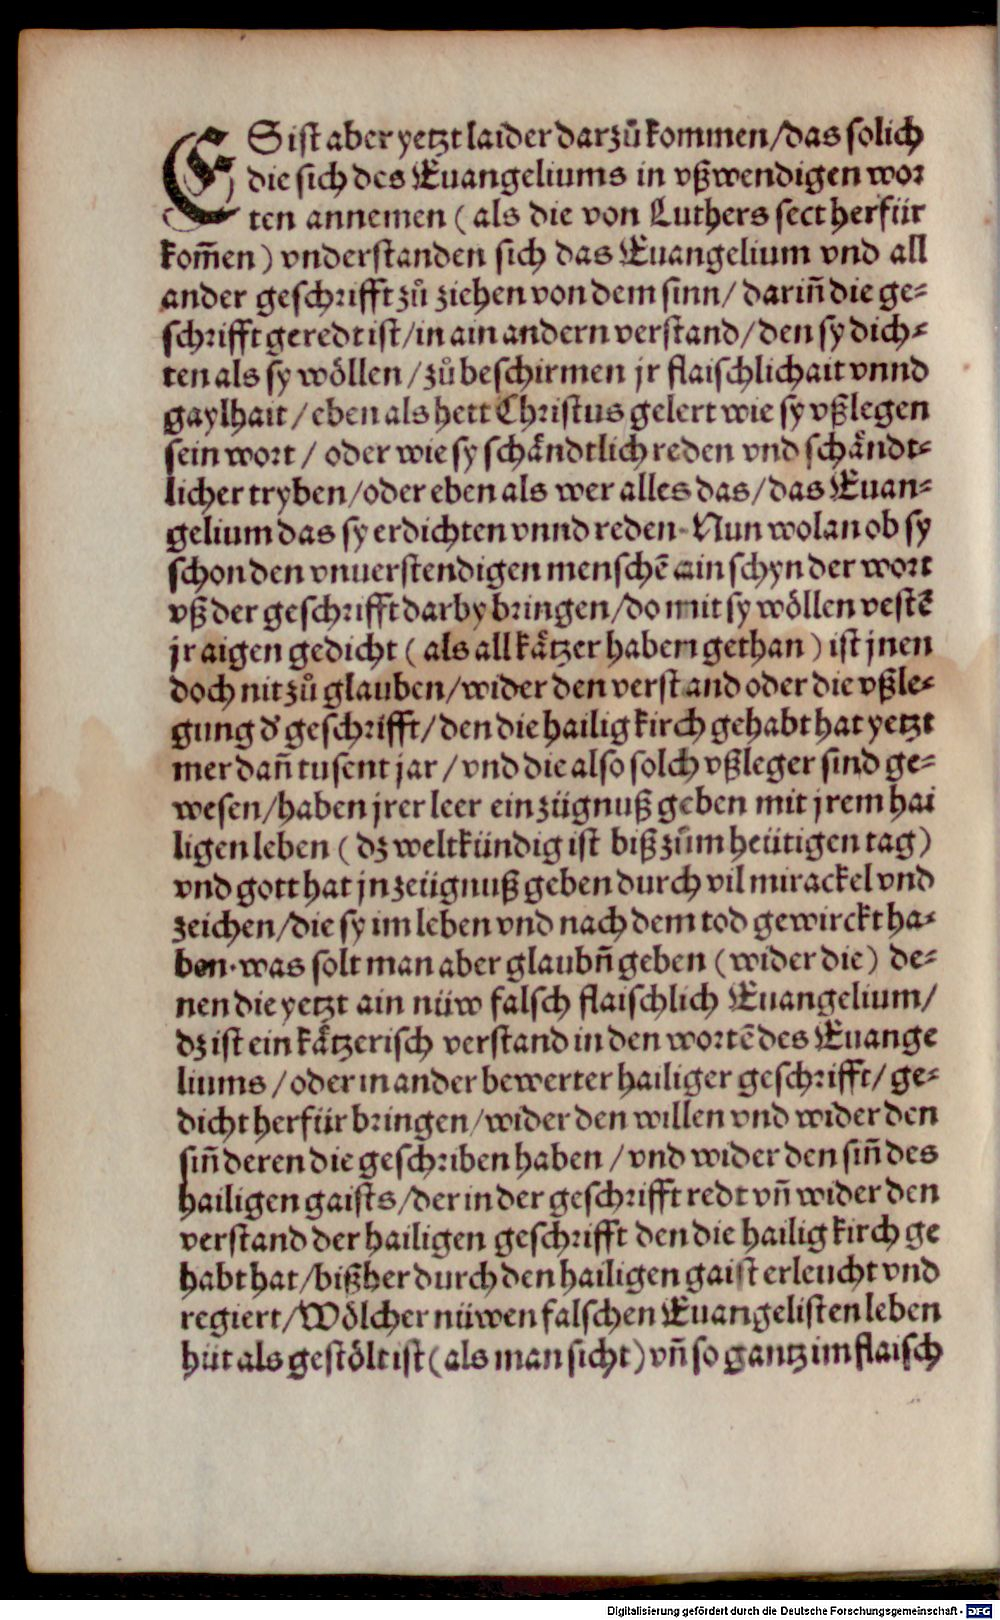 ES ist aber yetzt laider darzů kommen/das solich
die sich des Euangeliums in vßwendigen wor
ten annemen (als die von Luthers sect herfür
kom̃en) vnderstanden sich das Euangelium vnd all
ander geschrifft zů ziehen von dem sinn/ dariñ die ge⸗
schrifft geredt ist/in ain andern verstand/den sy dich⸗
ten als sy wöllen/zů beschirmen jr flaischlichait vnnd
gaylhait/eben als hett Christus gelert wie sy vßlegen
sein wort/ oder wie sy schåndtlich reden vnd schåndt⸗
licher tryben/oder eben als wer alles das/das Euan⸗
gelium das sy erdichten vnnd reden. Nun wolan ob sy
schon den vnuerstendigen menschē ain schyn der wort
vß der geschrifft darby bringen/do mit sy wöllen vestē
jr aigen gedicht (als all kåtzer haben gethan) ist jnen
doch nit zů glauben/wider den verstand oder die vßle⸗
gung d' geschrifft/den die hailig kirch gehabt hat yetzt
mer dañ tusent jar/vnd die also solch vßleger sind ge⸗
wesen/haben jrer leer ein zügnuß geben mit jrem hai
ligen leben (dz weltkündig ist biß zům heütigen tag)
vnd gott hat jn zeügnuß geben durch vil mirackel vnd
zeichen/die sy im leben vnd nach dem tod gewirckt ha⸗
ben. was solt man aber glaubñ geben (wider die) de⸗
nen die yetzt ain nüw falsch flaischlich Euangelium/
dz ist ein kåtzerisch verstand in den wortē des Euange
liums/oder in ander bewerter hailiger geschrifft/ge⸗
dicht herfür bringen/wider den willen vnd wider den
siñ deren die geschriben haben/vnd wider den siñ des
hailigen gaists/der in der geschrifft redt vñ wider den
verstand der hailigen geschrifft den die hailig kirch ge
habt hat/bißher durch den hailigen gaist erleucht vnd
regiert/Wölcher nüwen falschen Euangelisten leben
hüt als gestölt ist (als man sicht) vñ so gantz im flaisch
Digitalisierung gefördert durch die Deutsche Forschungsgemeinschaft - DFG